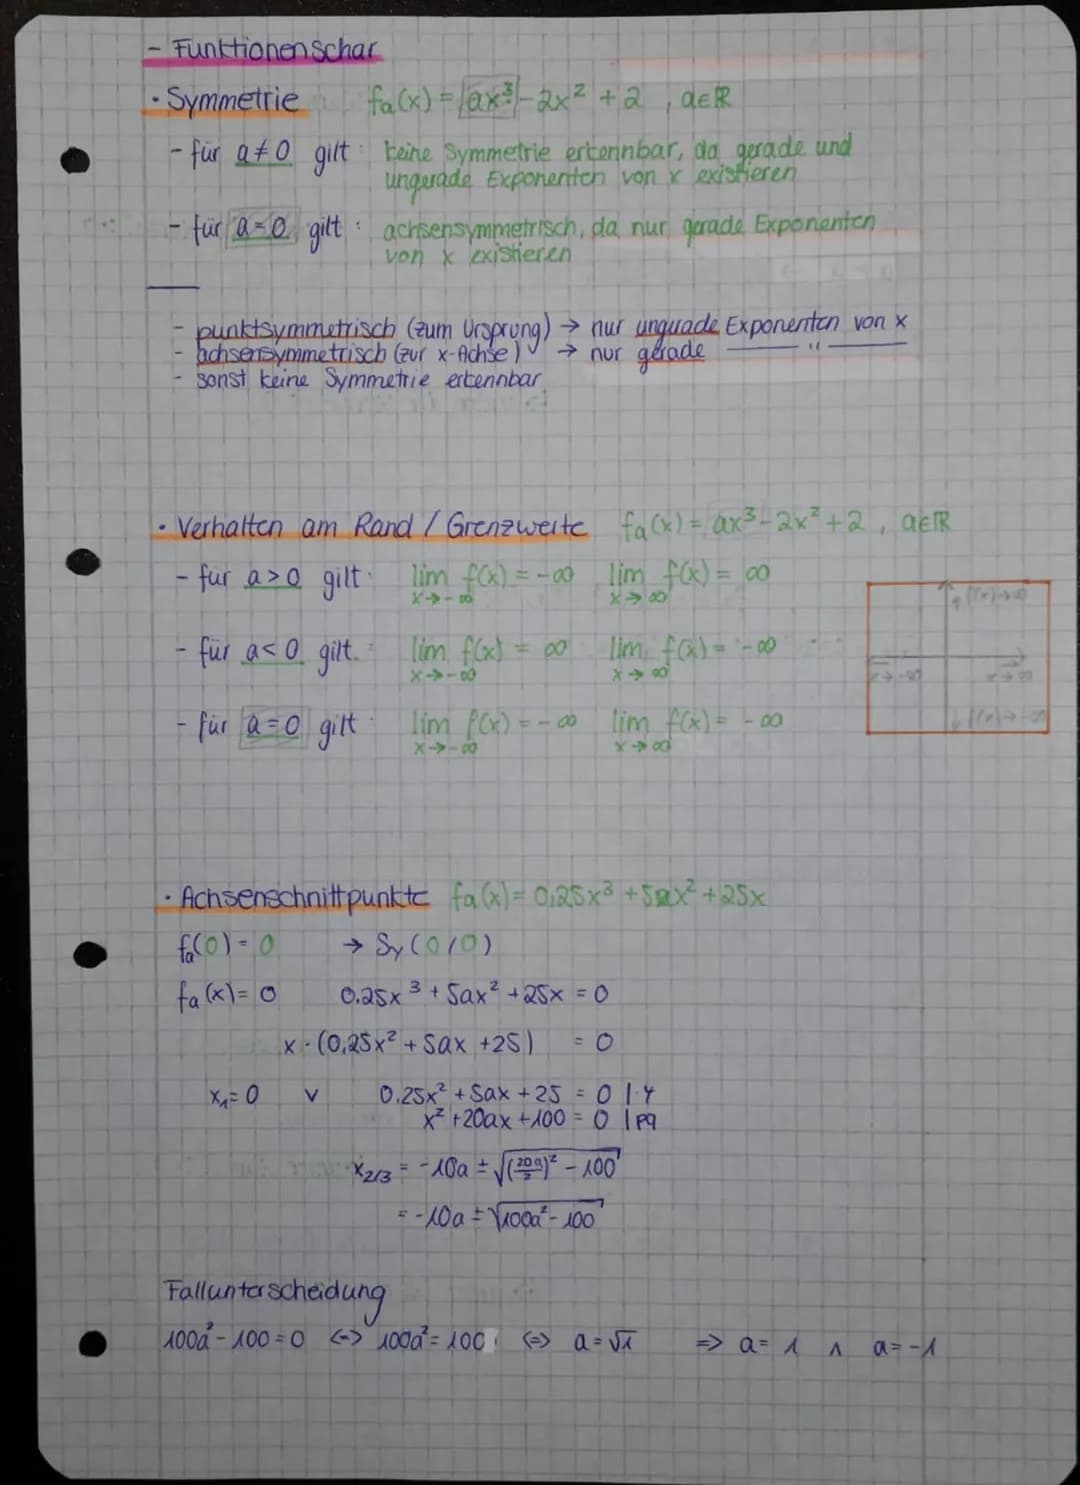 - Funktionenschar
• Symmetrie fa(x) = ax³ - 2x² + 2 , a∈ℝ
- für a≠0 gilt : keine Symmetrie erkennbar, da gerade und
ungerade Exponenten von x existieren
- für a=0 gilt : achsensymmetrisch, da nur gerade Exponenten
von x existieren
- punktsymmetrisch (zum Ursprung) → nur unguade Exponenten von x
- achsensymmetrisch (zur x-Achse) → nur gerade — " —
- sonst keine Symmetrie erkennbar
• Verhalten am Rand / Grenzwerte fa(x) = ax³ - 2x² + 2 , a∈ℝ
- für a>0 gilt : lim f(x) = -∞ lim f(x) = ∞
x→-∞ x→∞
- für a<0 gilt : lim f(x) = ∞ lim f(x) = -∞
x→-∞ x→∞
- für a=0 gilt : lim f(x) = -∞ lim f(x) = -∞
x→-∞ x→∞
↑ f(x)→∞
x→-∞ x→∞
↓ f(x)→-∞
• Achsenschnittpunkte fa(x) = 0,25x³ + 5ax² + 25x
fa(0) = 0 → Sy (0/0)
fa(x) = 0 0.25x³ + 5ax² + 25x = 0
x · (0,25x² + 5ax + 25) = 0
x₁ = 0 ∨ 0.25x² + 5ax + 25 = 0 | · 4
x² + 20ax + 100 = 0 | pq
x₂/₃ = -10a ± √((20a/2)² - 100)
= -10a ± √(100a² - 100)
Fallunterscheidung
100a² - 100 = 0 <=> 100a² = 100 <=> a = √1 => a = 1 ∧ a = -1